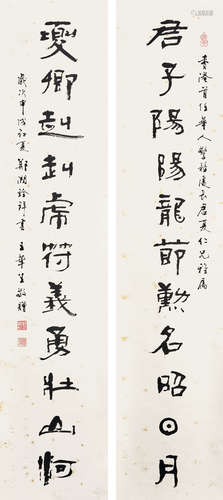 君子陽陽龍節勳名昭日月
香港首任華人警務處長君夏仁兄雅屬
夏卿赳赳虎符義勇壯山河
歲次甲戌初夏鄭書王華生敬贈